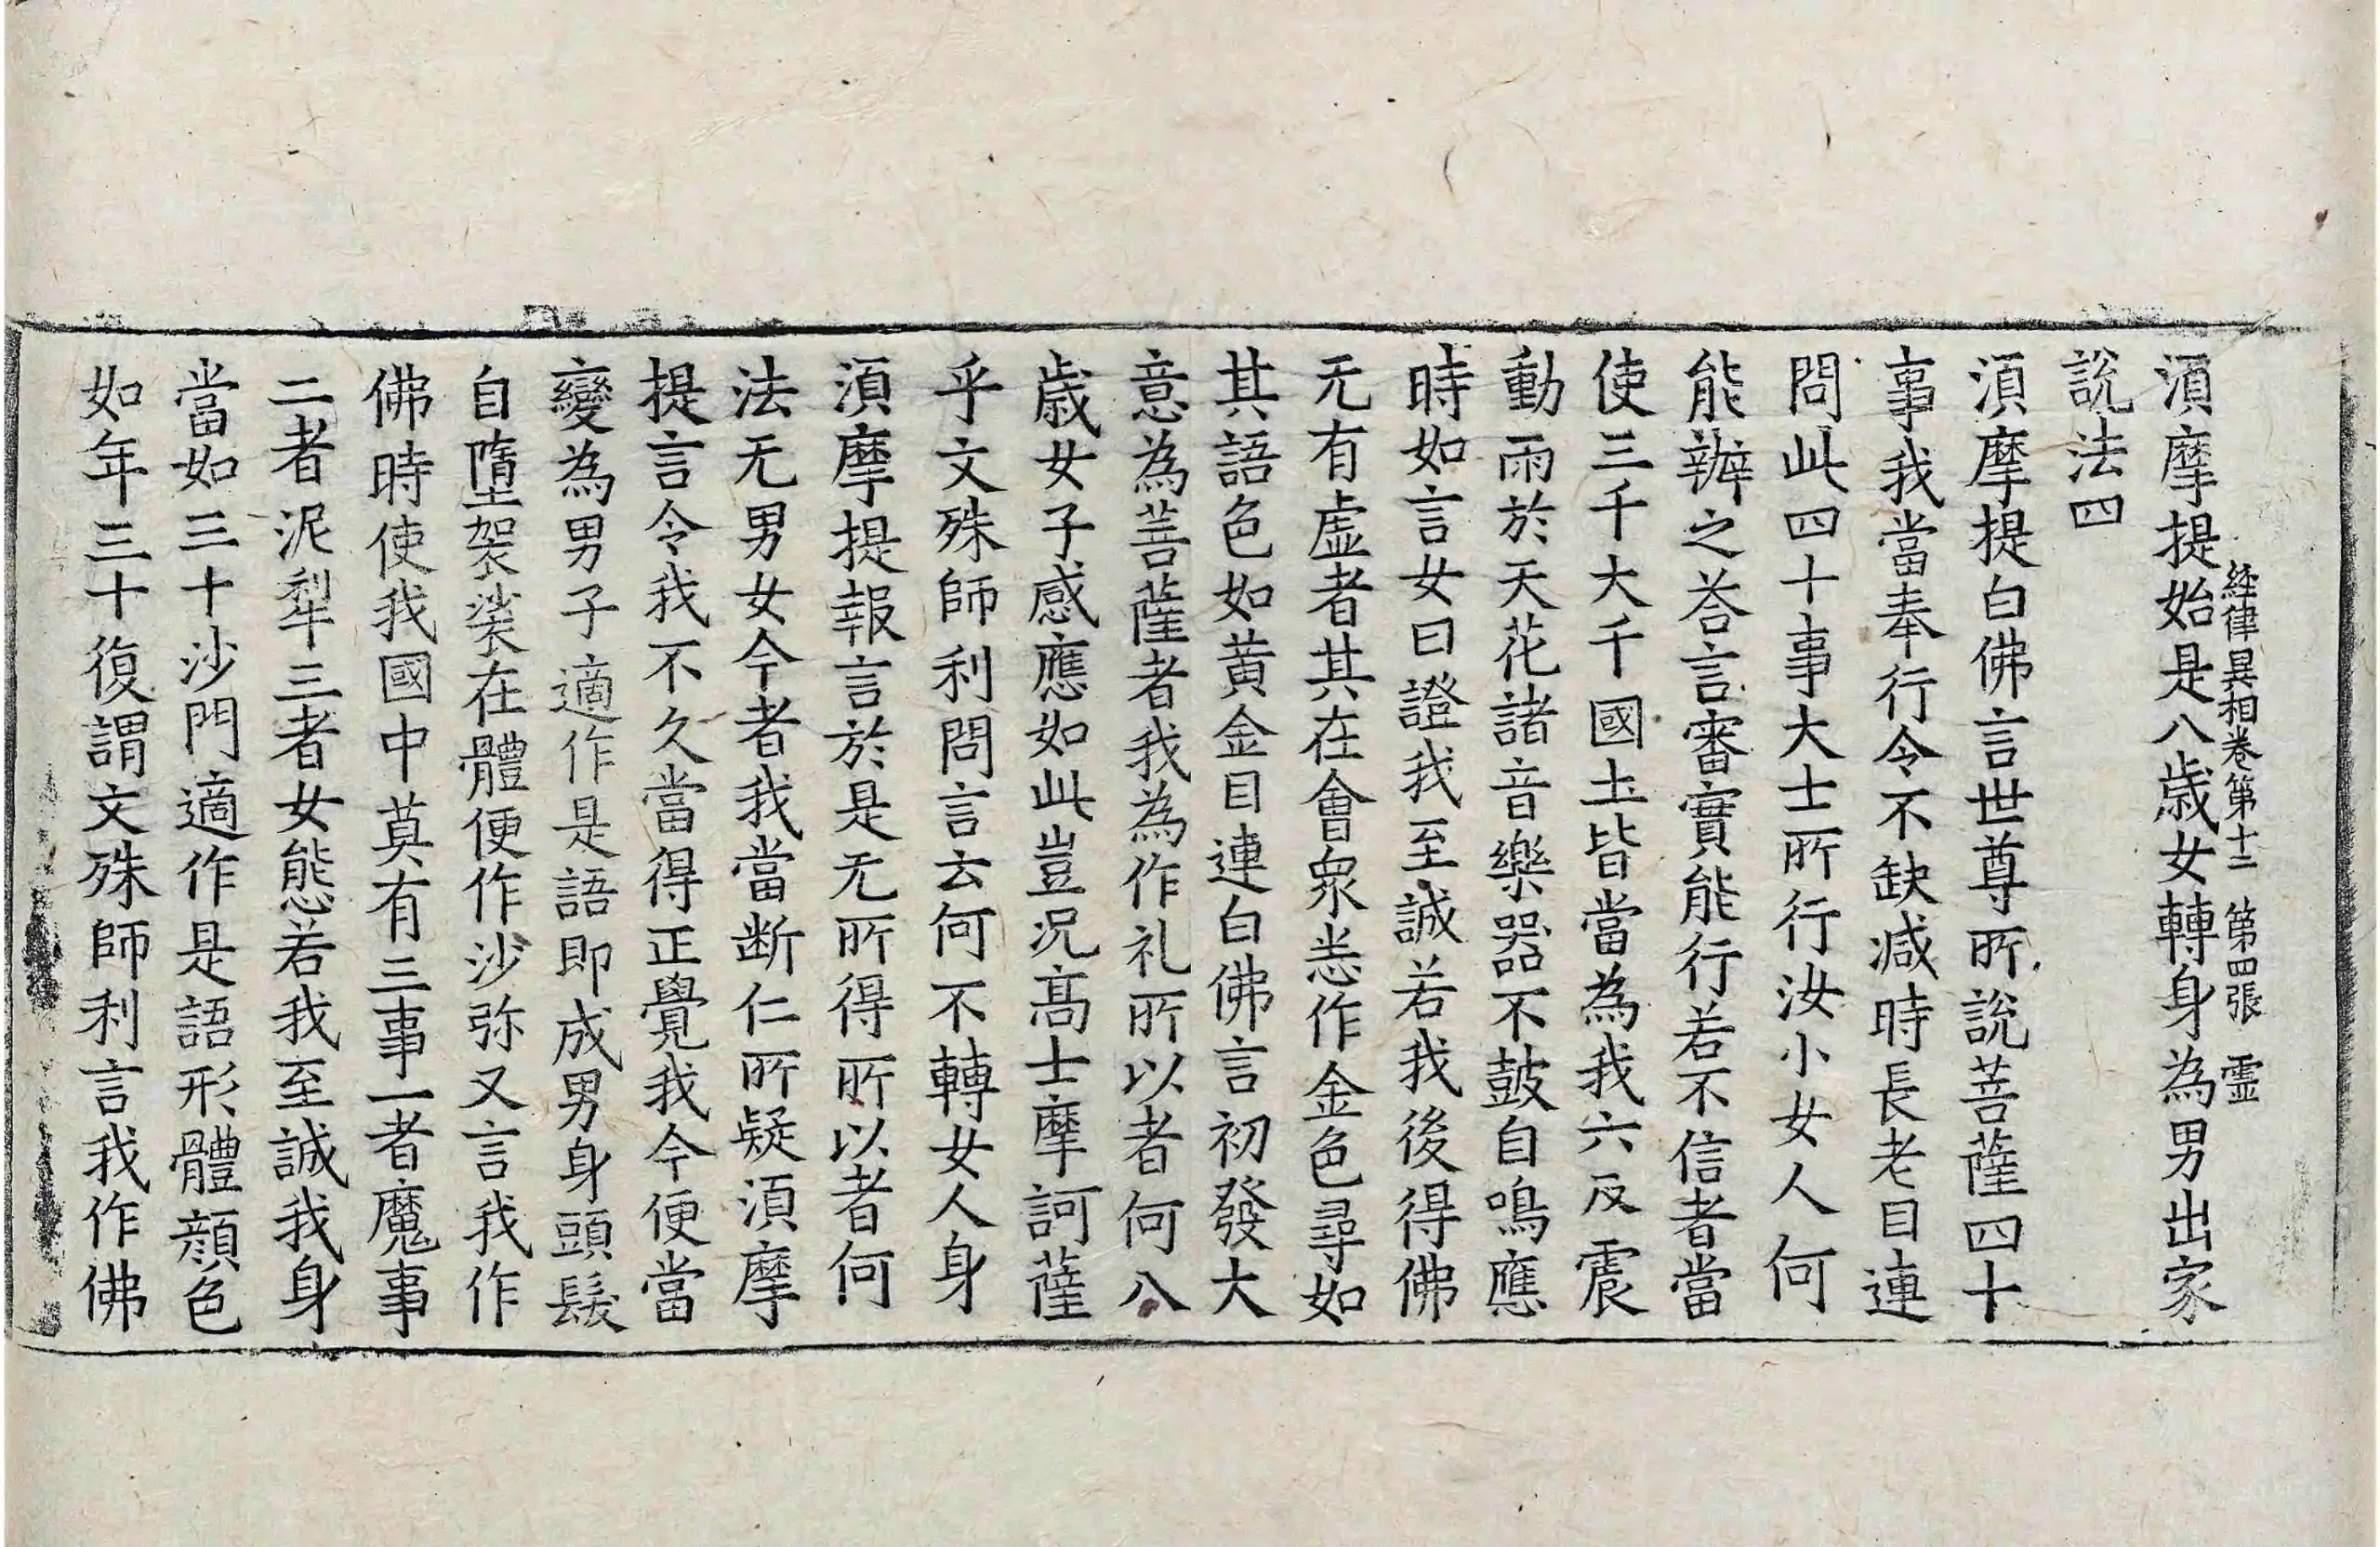 經律異相卷第十二 第四張 霊
湏摩提始是八歲女轉身為男出家
說法四
湏摩提白佛言世尊所說菩薩四十
事我當奉行令不缺减時長老目連
問此四十事大士所行汝小女人何
能辦之荅言審實能行若不信者當
使三千大千國土皆當為我六反震
動雨於天花諸音樂器不鼓自鳴應
時如言女曰證我至誠若我後得佛
无有虛者其在會衆悉作金色尋如
其語色如黄金目連白佛言初發大
意為菩薩者我為作礼所以者何八
歲女子感應如此豈况髙士摩訶薩
乎文殊師利問言云何不轉女人身
湏摩提報言於是无所得所以者何
法无男女今者我當断仁所疑湏摩
提言令我不久當得正覺我今便當
變為男子適作是語即成男身頭髮
自墮袈裟在體便作沙弥又言我作
佛時使我國中莫有三事一者魔事
二者泥犁三者女態若我至誠我身
當如三十沙門適作是語形體顔色
如年三十復謂文殊師利言我作佛